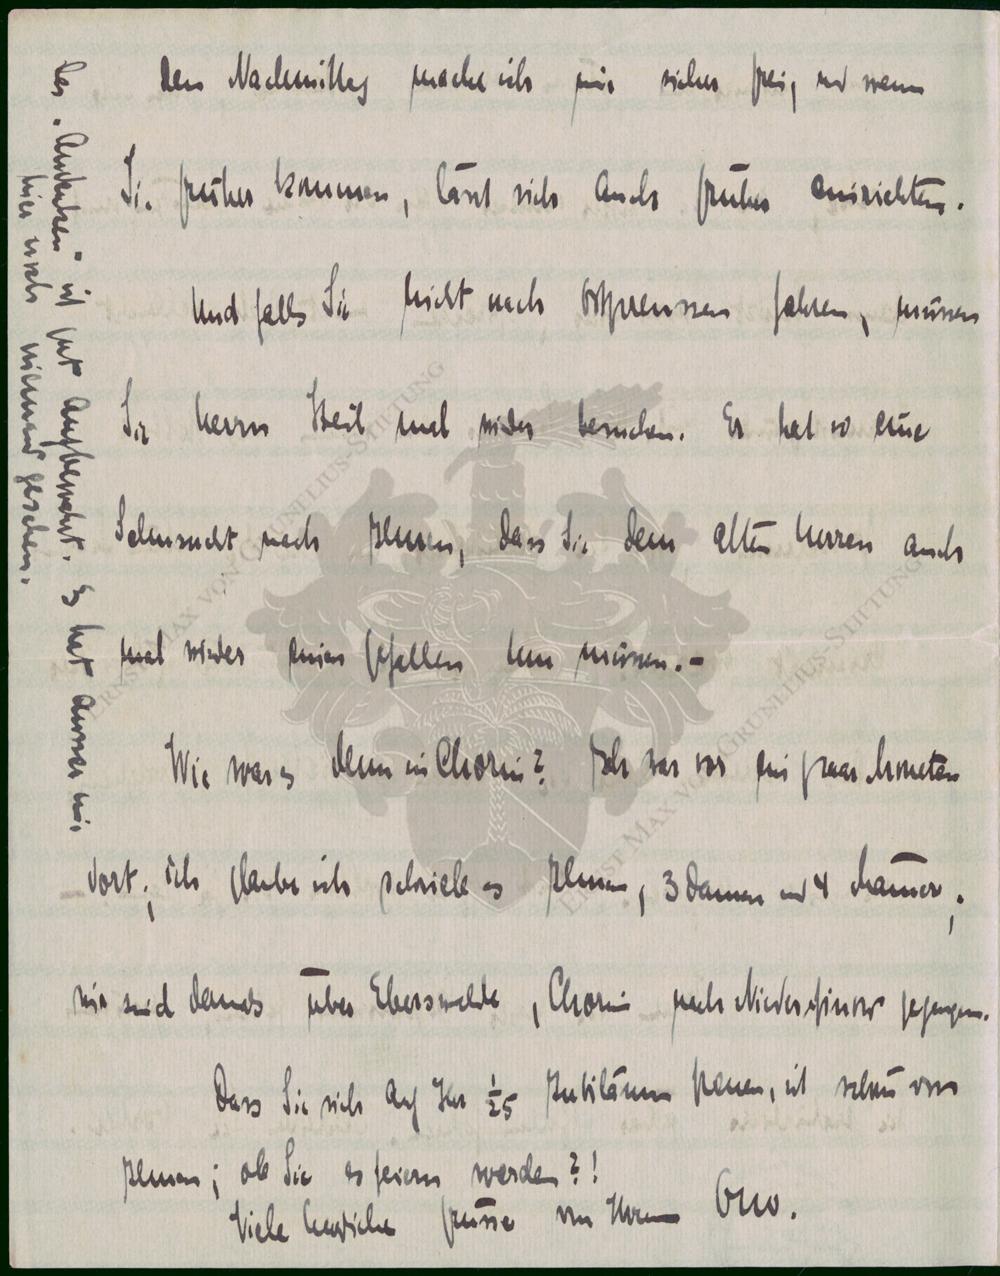 Den Nachmittag mache ich mir sicher frei, und wenn
Sie früher kommen, lässt sich auch früher einrichten.
Und falls Sie nicht nach Ostpreussen fahren, müssen
Sie Herrn Steil mal wieder besuchen. Er hat so eine
Sehnsucht nach Ihnen, dass Sie dem alten Herren auch
mal wieder einen Gefallen tun müssen.-
Wie war es denn in Chorin? Ich war vor ein paar Monaten
dort; ich glaube ich schrieb es Ihnen, 3 Damen und 4 Männer,;
wir sind damals über Eberswalde, Chorin nach Niederfinow gegangen.
Dass Sie sich auf Ihr 1/25 Jubiläum freuen, ist schön von
Ihnen; ob Sie es feiern werden?!
Viele herzliche Grüsse von Ihrem Otto.
Das "Andenken" ist gut aufbewahrt. Es hat ausser mir
hier noch niemand gesehen.
ERNST MAX VON GRUNELIUS-STIFTUNG
ERNST MAX VON GRUNELIUS-STIFTUNG